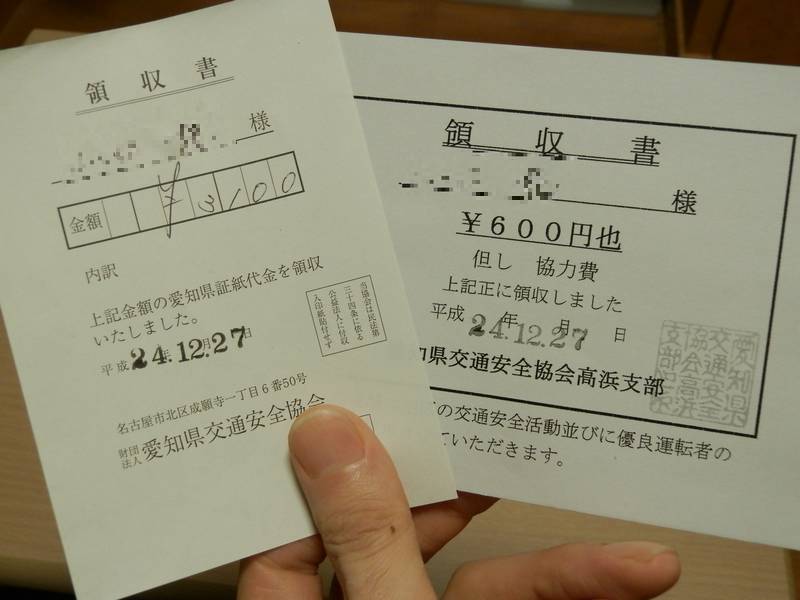 領収書
様
金額 ¥3100
内訳
上記金額の愛知県証紙代金を領収
いたしました。
当協会は民法第
三十四条に依る
公益法人に付収
入印紙貼付せず
平成24年12月27日
名古屋市北区成願寺一丁目6番50号
財団法人 愛知県交通安全協会
領収書
様
¥600円也
但し 協力費
上記正に領収しました
平成24年12月27日
知県交通安全協会高浜支部
愛知県
交通安
協会高浜
支部
の交通安全活動並びに優良運転者の
ていただきます。